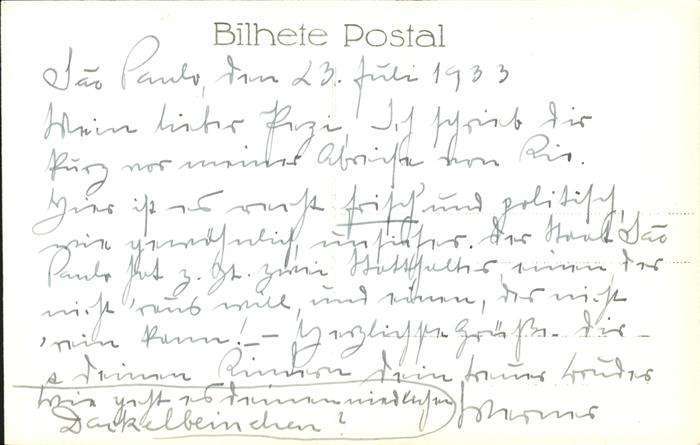 Bilhete Postal
São Paulo, den 23. Juli 1933
Mein lieber Pezi, Ich schrieb dir
kurz vor meiner Abreise von Rio.
Hier ist es recht frisch und politisch,
wie gewöhnlich, unsicher. Der Staat São
Paulo hat z. Zt. zwei Statthalter, einen, der
nicht 'raus will, und einen, der nicht
'rein kann! – Herzlichste Grüße dir
& deinen Kindern dein treuer Bruder
Werner
Wie geht es deinen niedlichen
Dackelbeinchen?